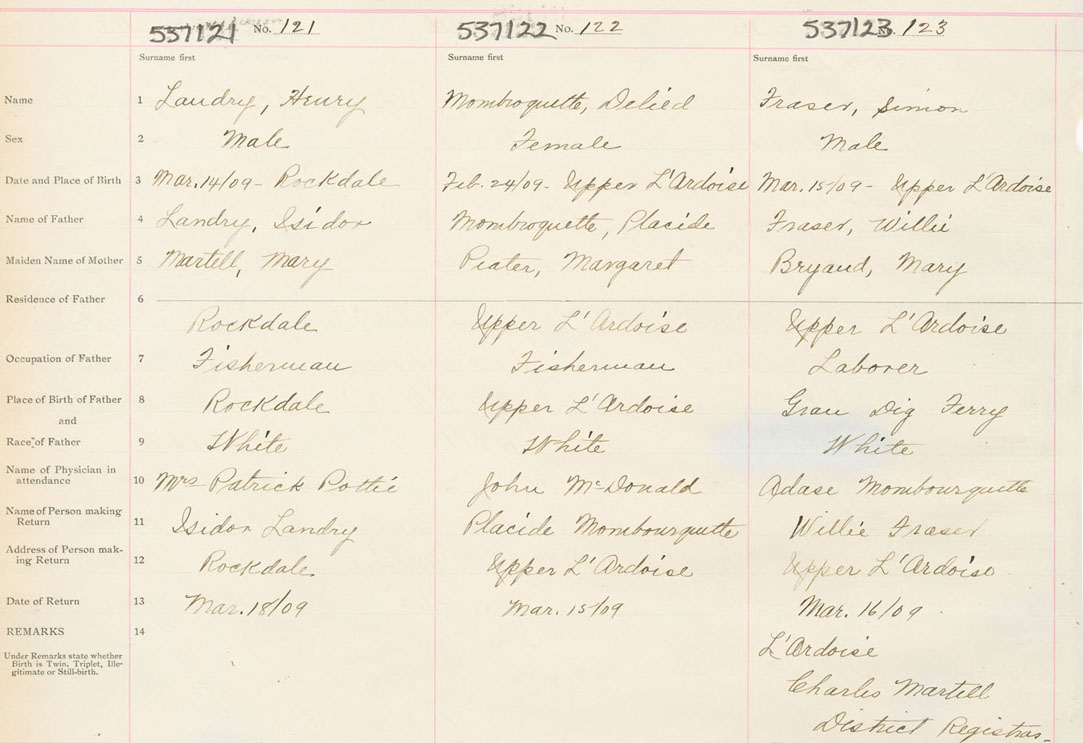 537121 No. 121 537122 No. 122 537123 No. 123
Surname first Surname first Surname first
Name 1 Landry, Henry Mombroquette, Delied Fraser, Simon
Sex 2 Male Female Male
Date and Place of Birth 3 Mar. 14/09 - Rockdale Feb. 24/09 - Upper L'Ardoise Mar. 15/09 - Upper L'Ardoise
Name of Father 4 Landry, Isidor Mombroquette, Placide Fraser, Willie
Maiden Name of Mother 5 Martell, Mary Prater, Margaret Bryand, Mary
Residence of Father 6
Rockdale Upper L'Ardoise Upper L'Ardoise
Occupation of Father 7 Fisherman Fisherman Laborer
Place of Birth of Father 8 Rockdale Upper L'Ardoise Gran Dig Ferry
and
Race of Father 9 White White White
Name of Physician in
attendance 10 Mrs Patrick Pottie John McDonald Adase Mombourquette
Name of Person making
Return 11 Isidor Landry Placide Mombourquette Willie Fraser
Address of Person mak-
ing Return 12 Rockdale Upper L'Ardoise Upper L'Ardoise
Date of Return 13 Mar. 18/09 Mar. 15/09 Mar. 16/09
REMARKS 14
Under Remarks state whether
Birth is Twin, Triplet, Ille-
gitimate or Still-birth.
L'Ardoise
Charles Martell
District Registrar